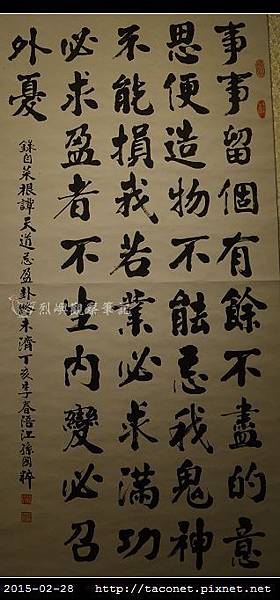 事事留個有餘不盡的意
思便造物不能忌我鬼神
不能損我若業必求滿功
必求盈者不生內變必召
外憂
錄自菜根譚天道忌盈卦終未濟丁亥季春浯江孫國粹
烈嶼觀察筆記
2015-02-28 http://taconet.pixnet.net